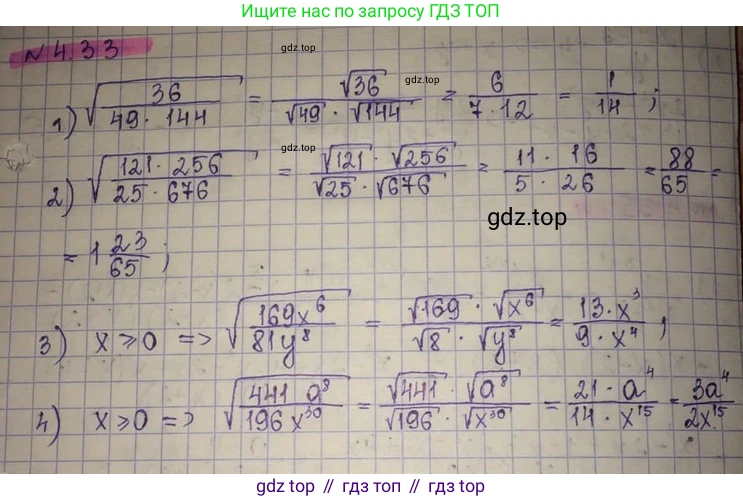 Ищите нас по запросу ГДЗ ТОП
№ 4.33
gdz.top
1) √(36/(49 · 144)) = √36/(√49 · √144) = 6/(7 · 12) = 1/14 ;
gdz.top
2) √((121 · 256)/(25 · 676)) = (√121 · √256)/(√25 · √676) = (11 · 16)/(5 · 26) = 88/65 =
gdz.top
= 1 23/65 ;
3) x ≥ 0 => √(169x⁶/81y⁸) = (√169 · √x⁶)/(√8 · √y⁸) = (13 · x³)/(9 · x⁴) ;
gdz.top
4) x ≥ 0 => √(441 a⁸/196 x³⁰) = (√441 · √a⁸)/(√196 · √x³⁰) = (21 · a⁴)/(14 · x¹⁵) = 3a⁴/2x¹⁵
gdz.top
gdz.top // gdz.top // gdz.top